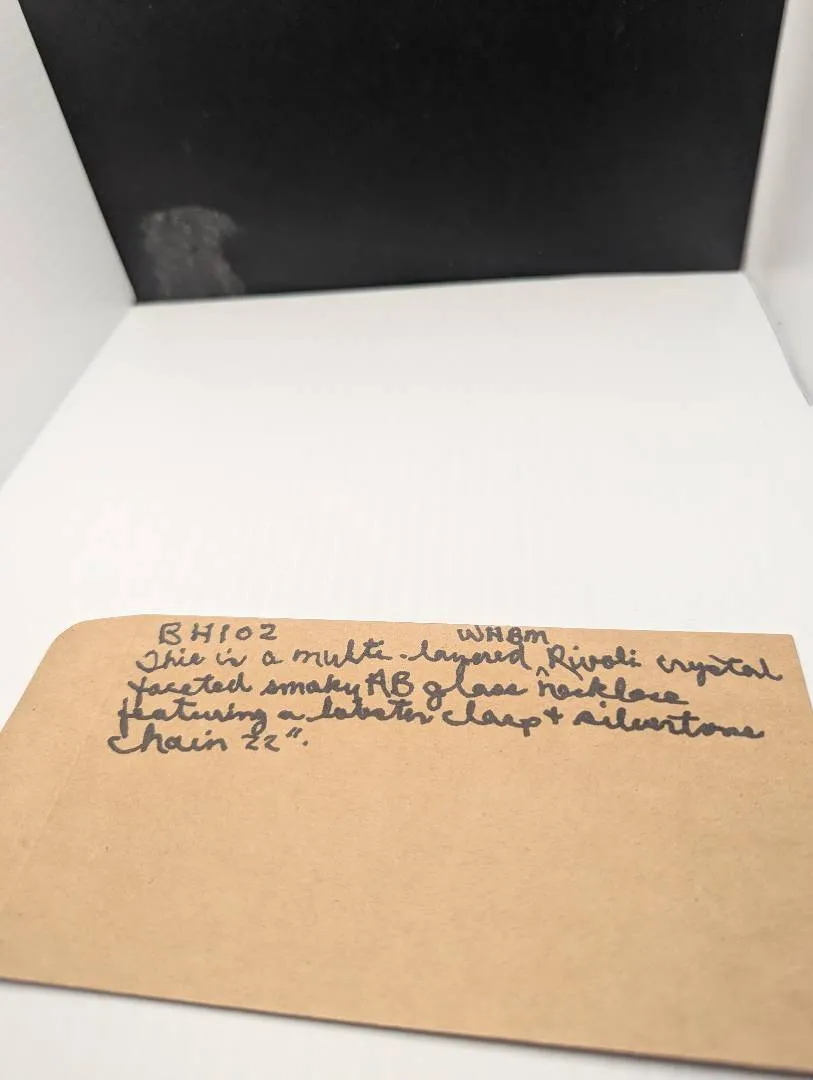 BH102 WHBM
This is a multi-layered ^ Rivoli crystal
faceted smoky AB glass necklace
featuring a lobster clasp + silvertone
chain 22".